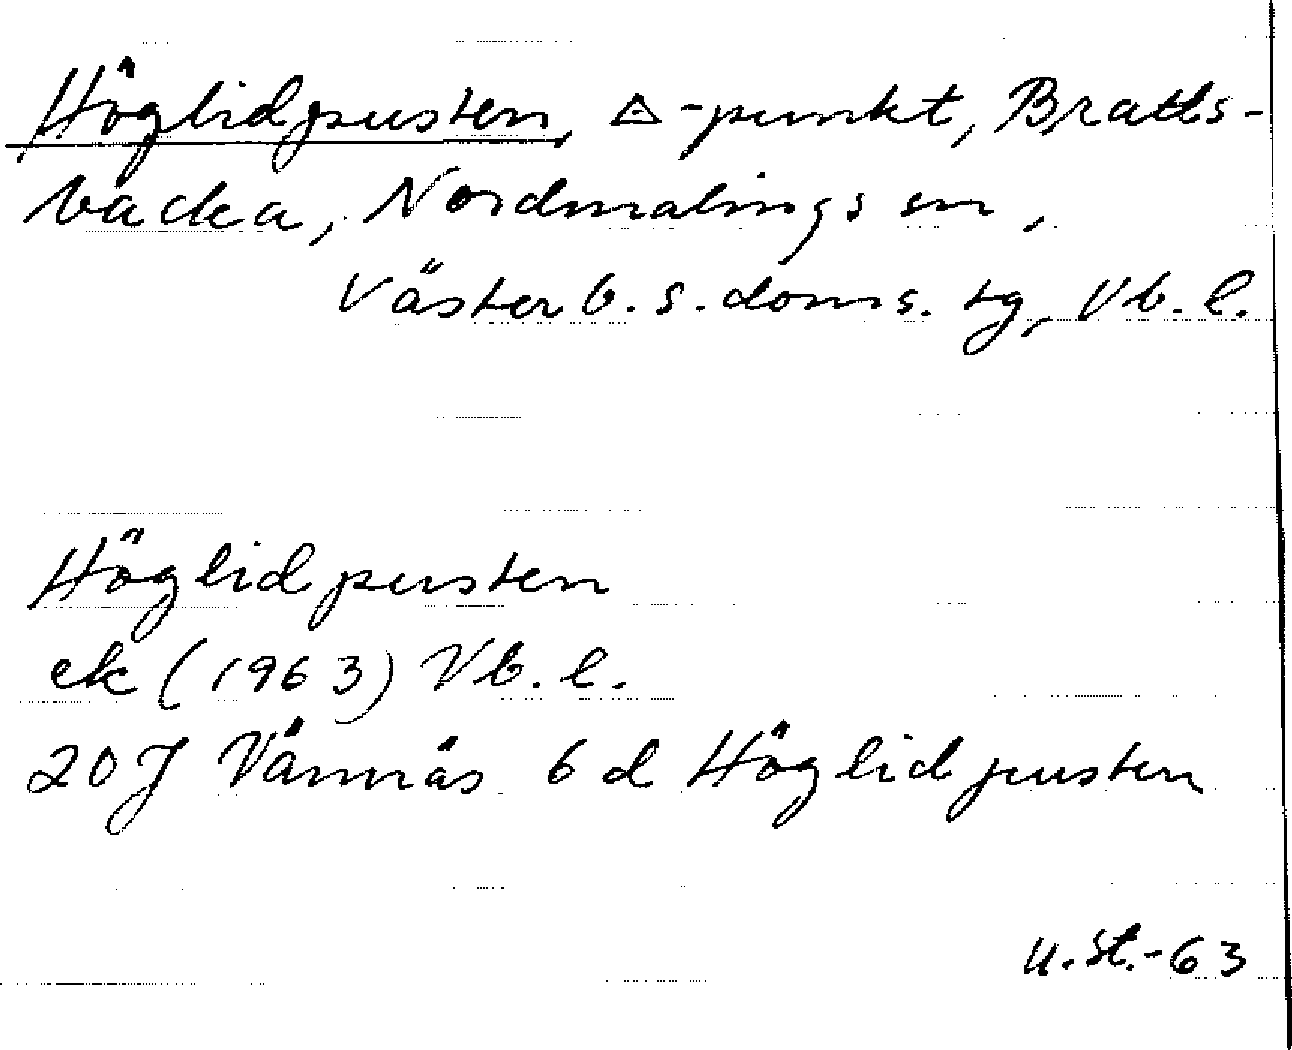 Höglidpusten, △-punkt, Bratts-
backa, Nordmalings sn,
Västerb. s. doms. tg, Vb. l.
Höglidpusten
ek (1963) Vb. l.
20J Vännäs 6d Höglidpusten
U. St. -63